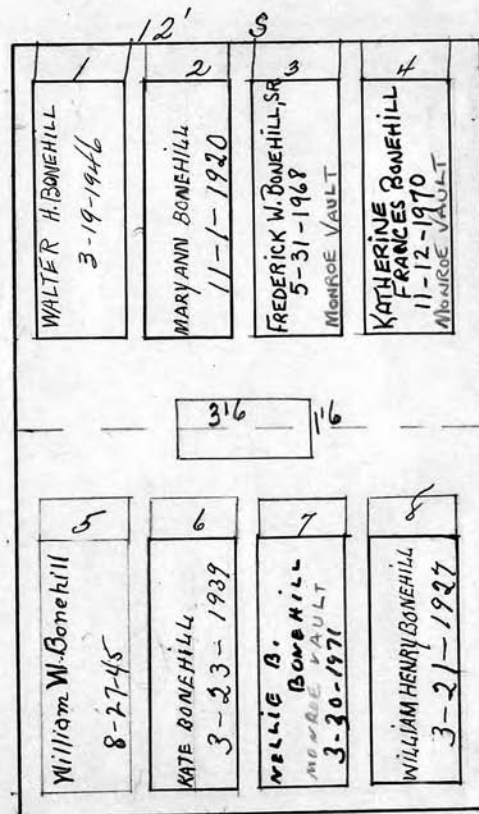 12' S
1
WALTER H. BONEHILL
3-19-1946
2
MARYANN BONEHILL
11-1-1920
3
FREDERICK W. BONEHILL, SR
5-31-1968
MONROE VAULT
4
KATHERINE
FRANCES BONEHILL
11-12-1970
MONROE VAULT
3'6 1'6
5
William W. Bonehill
8-27-45
6
KATE BONEHILL
3-23-1939
7
NELLIE B.
BONEHILL
MONROE VAULT
3-30-1971
8
WILLIAM HENRY BONEHILL
3-21-1927